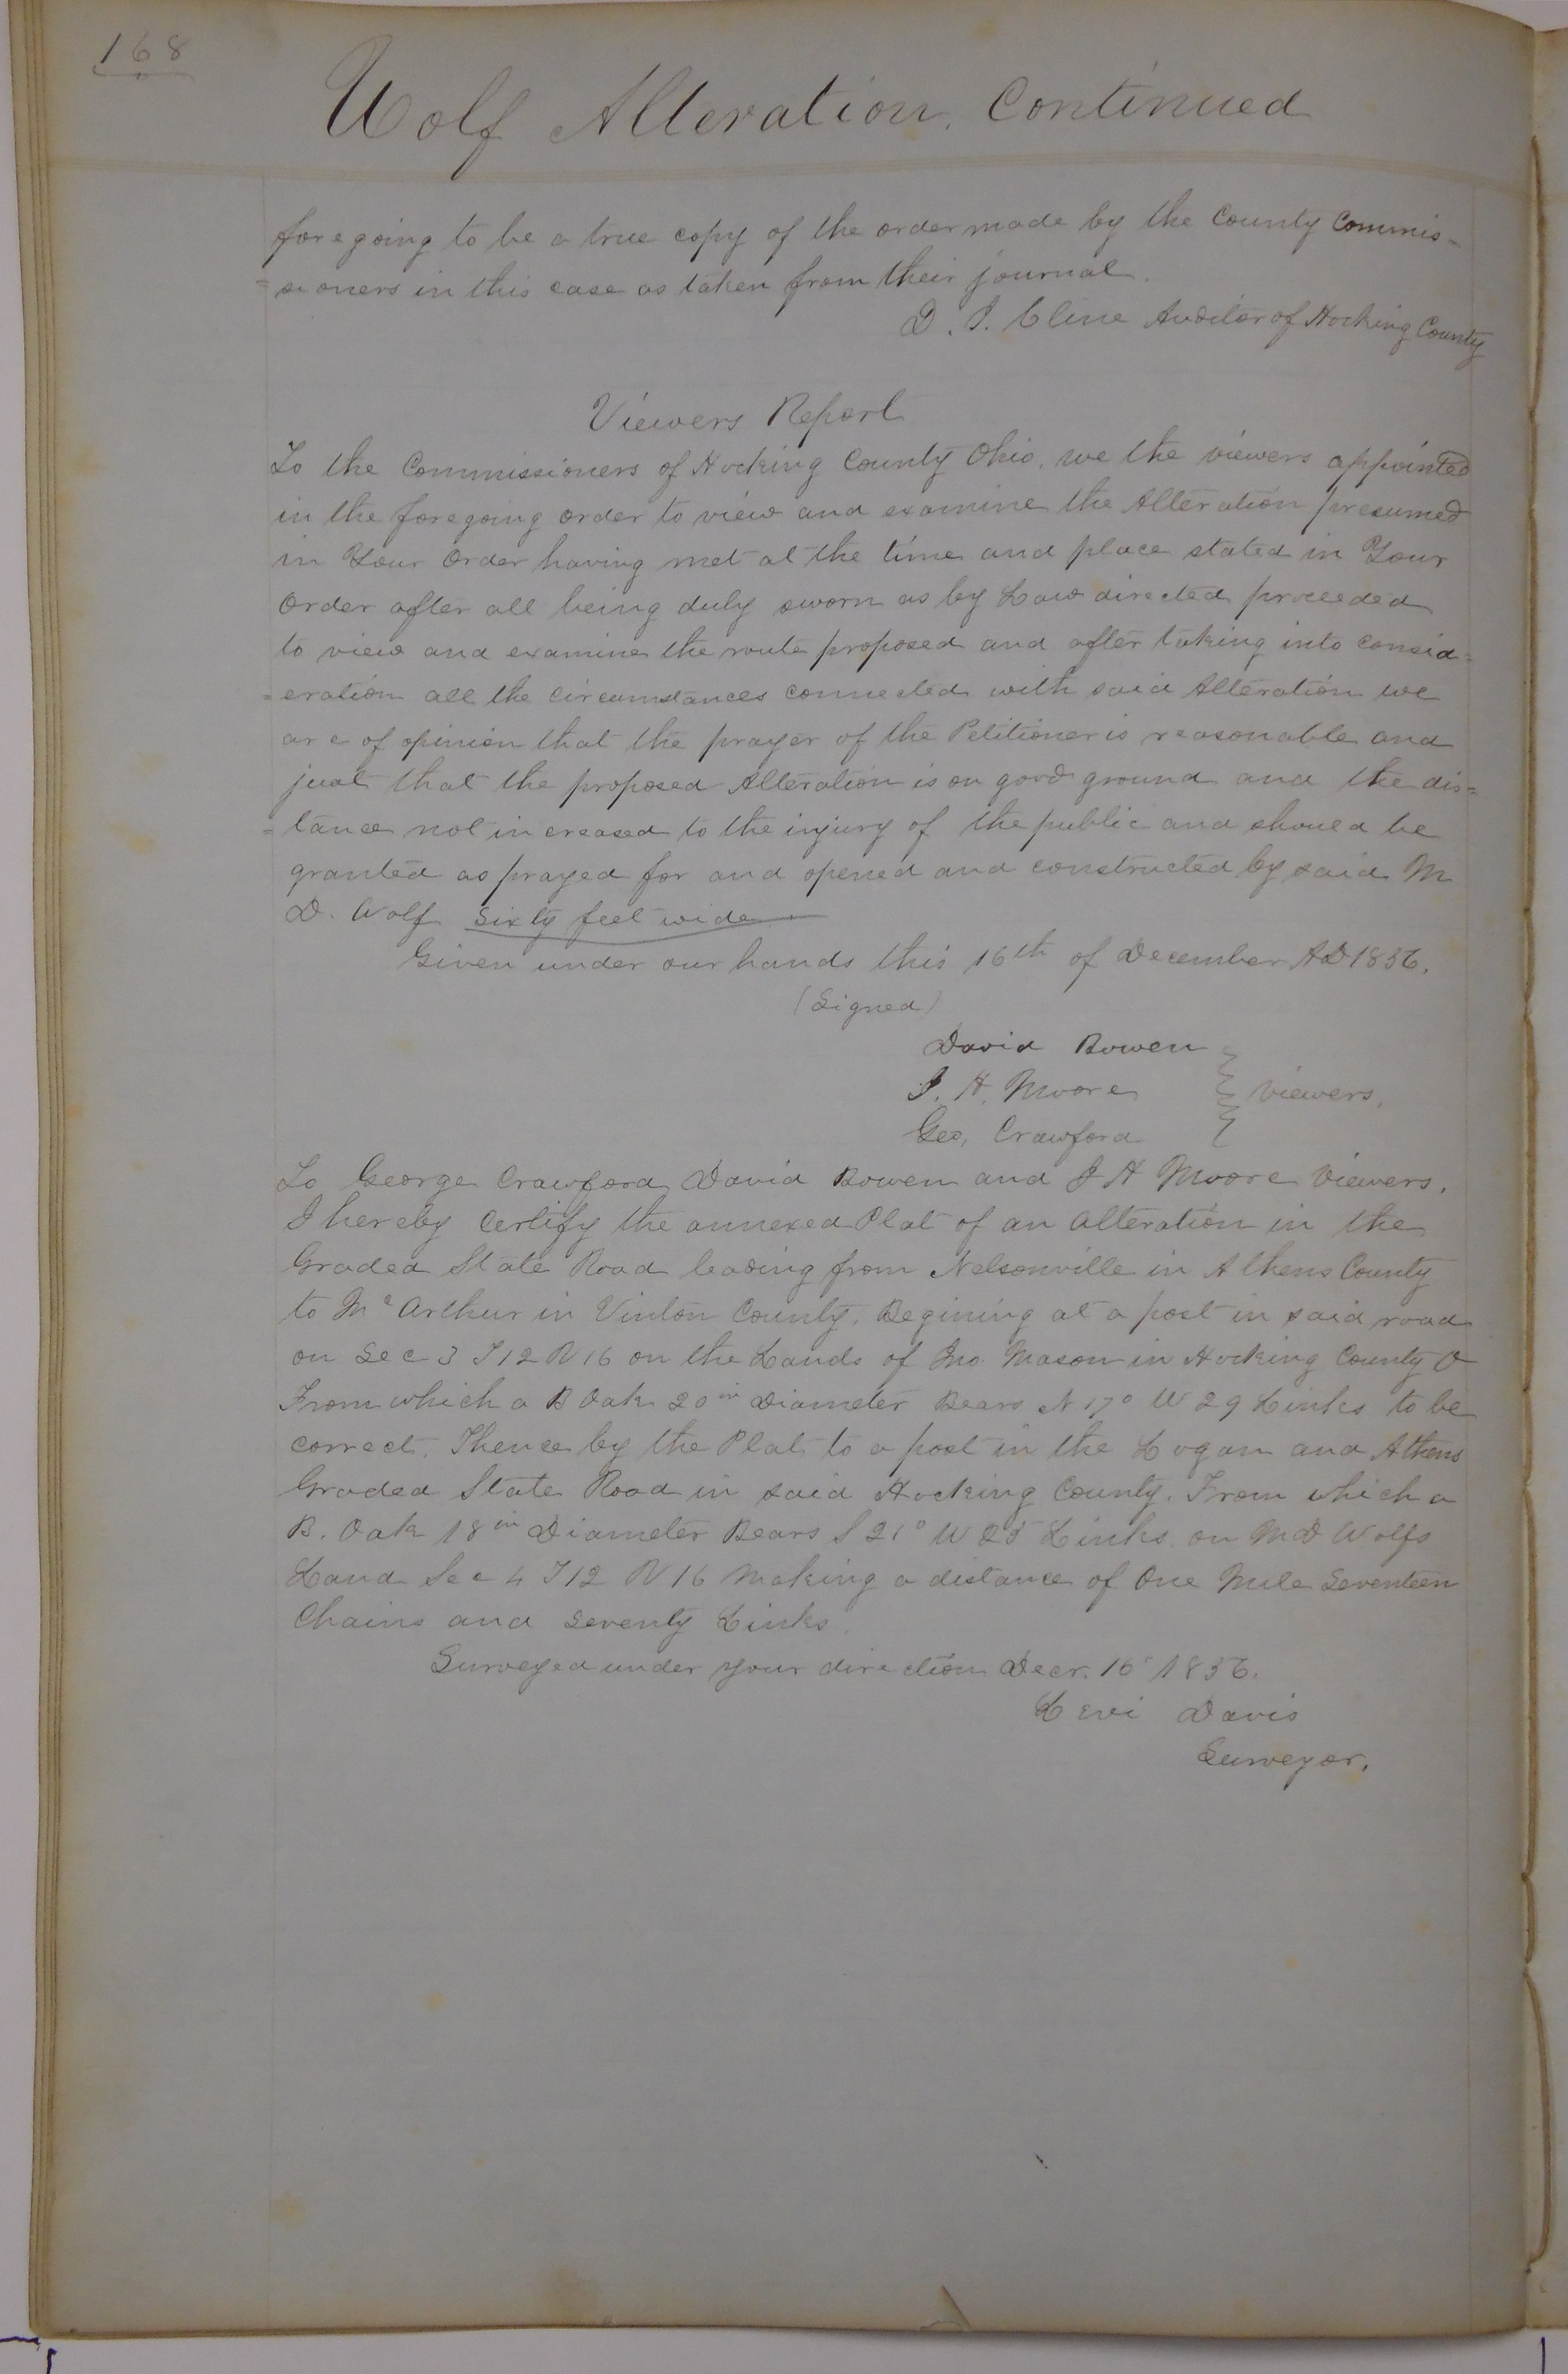 168
Wolf Alteration, Continued
foregoing to be a true copy of the order made by the County Commis-
=sioners in this case as taken from their journal.
D. I. Cline Auditor of Hocking County
Viewers Report
To the Commissioners of Hocking County Ohio, we the viewers appointed
in the foregoing order to view and examine the Alteration presumed
in Your Order having met at the time and place stated in Your
Order after all being duly sworn as by Law directed proceeded
to view and examine the route proposed and after taking into consid=
=eration all the circumstances connected with said Alteration we
are of opinion that the prayer of the Petitioner is reasonable and
just that the proposed Alteration is on good ground and the dis=
=tance not increased to the injury of the public and should be
granted as prayed for and opened and constructed by said M
D. Wolf Sixty feet wide
Given under our hands this 16th of December AD 1856.
(Signed)
David Bowen
J. H. Moore } Viewers.
Geo, Crawford
To George Crawford David Bowen and J H Moore Viewers.
I hereby Certify the annexed Plat of an Alteration in the
Graded State Road leading from Nelsonville in Athens County
to Mc Arthur in Vinton County. Begining at a post in said road
on Sec 3 T12 R16 on the Lands of Jno Mason in Hocking County O
From which a B Oak 20in Diameter Bears N 17° W 29 Links to be
correct. Thence by the Plat to a post in the Logan and Athens
Graded State Road in said Hocking County. From which a
B. Oak 18in Diameter Bears S 21° W 25 Links on M D Wolfs
Land Sec 4 T12 R16 Making a distance of One Mile Seventeen
Chains and Seventy Links.
Surveyed under your direction Decr. 16 1856.
Levi Davis
Surveyor.